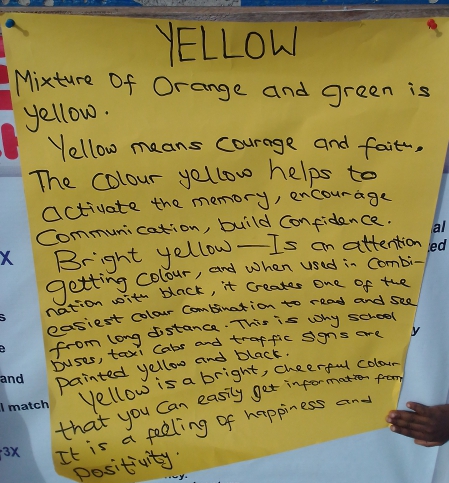 YELLOW
Mixture Of Orange and green is
yellow.
Yellow means Courage and faith.
The Colour yellow helps to
activate the memory, encourage
Communication, build Confidence.
Bright yellow — Is an attention
getting Colour, and when used in Combi-
nation with black, it creates one of the
easiest colour Combination to read and see
from long distance. This is why school
buses, taxi Cabs and traffic signs are
painted yellow and black.
Yellow is a bright, cheerful Colour
that you can easily get information from
It is a feeling of happiness and
Positivity.
al
ed
X
s
e
y
and
l match
3X